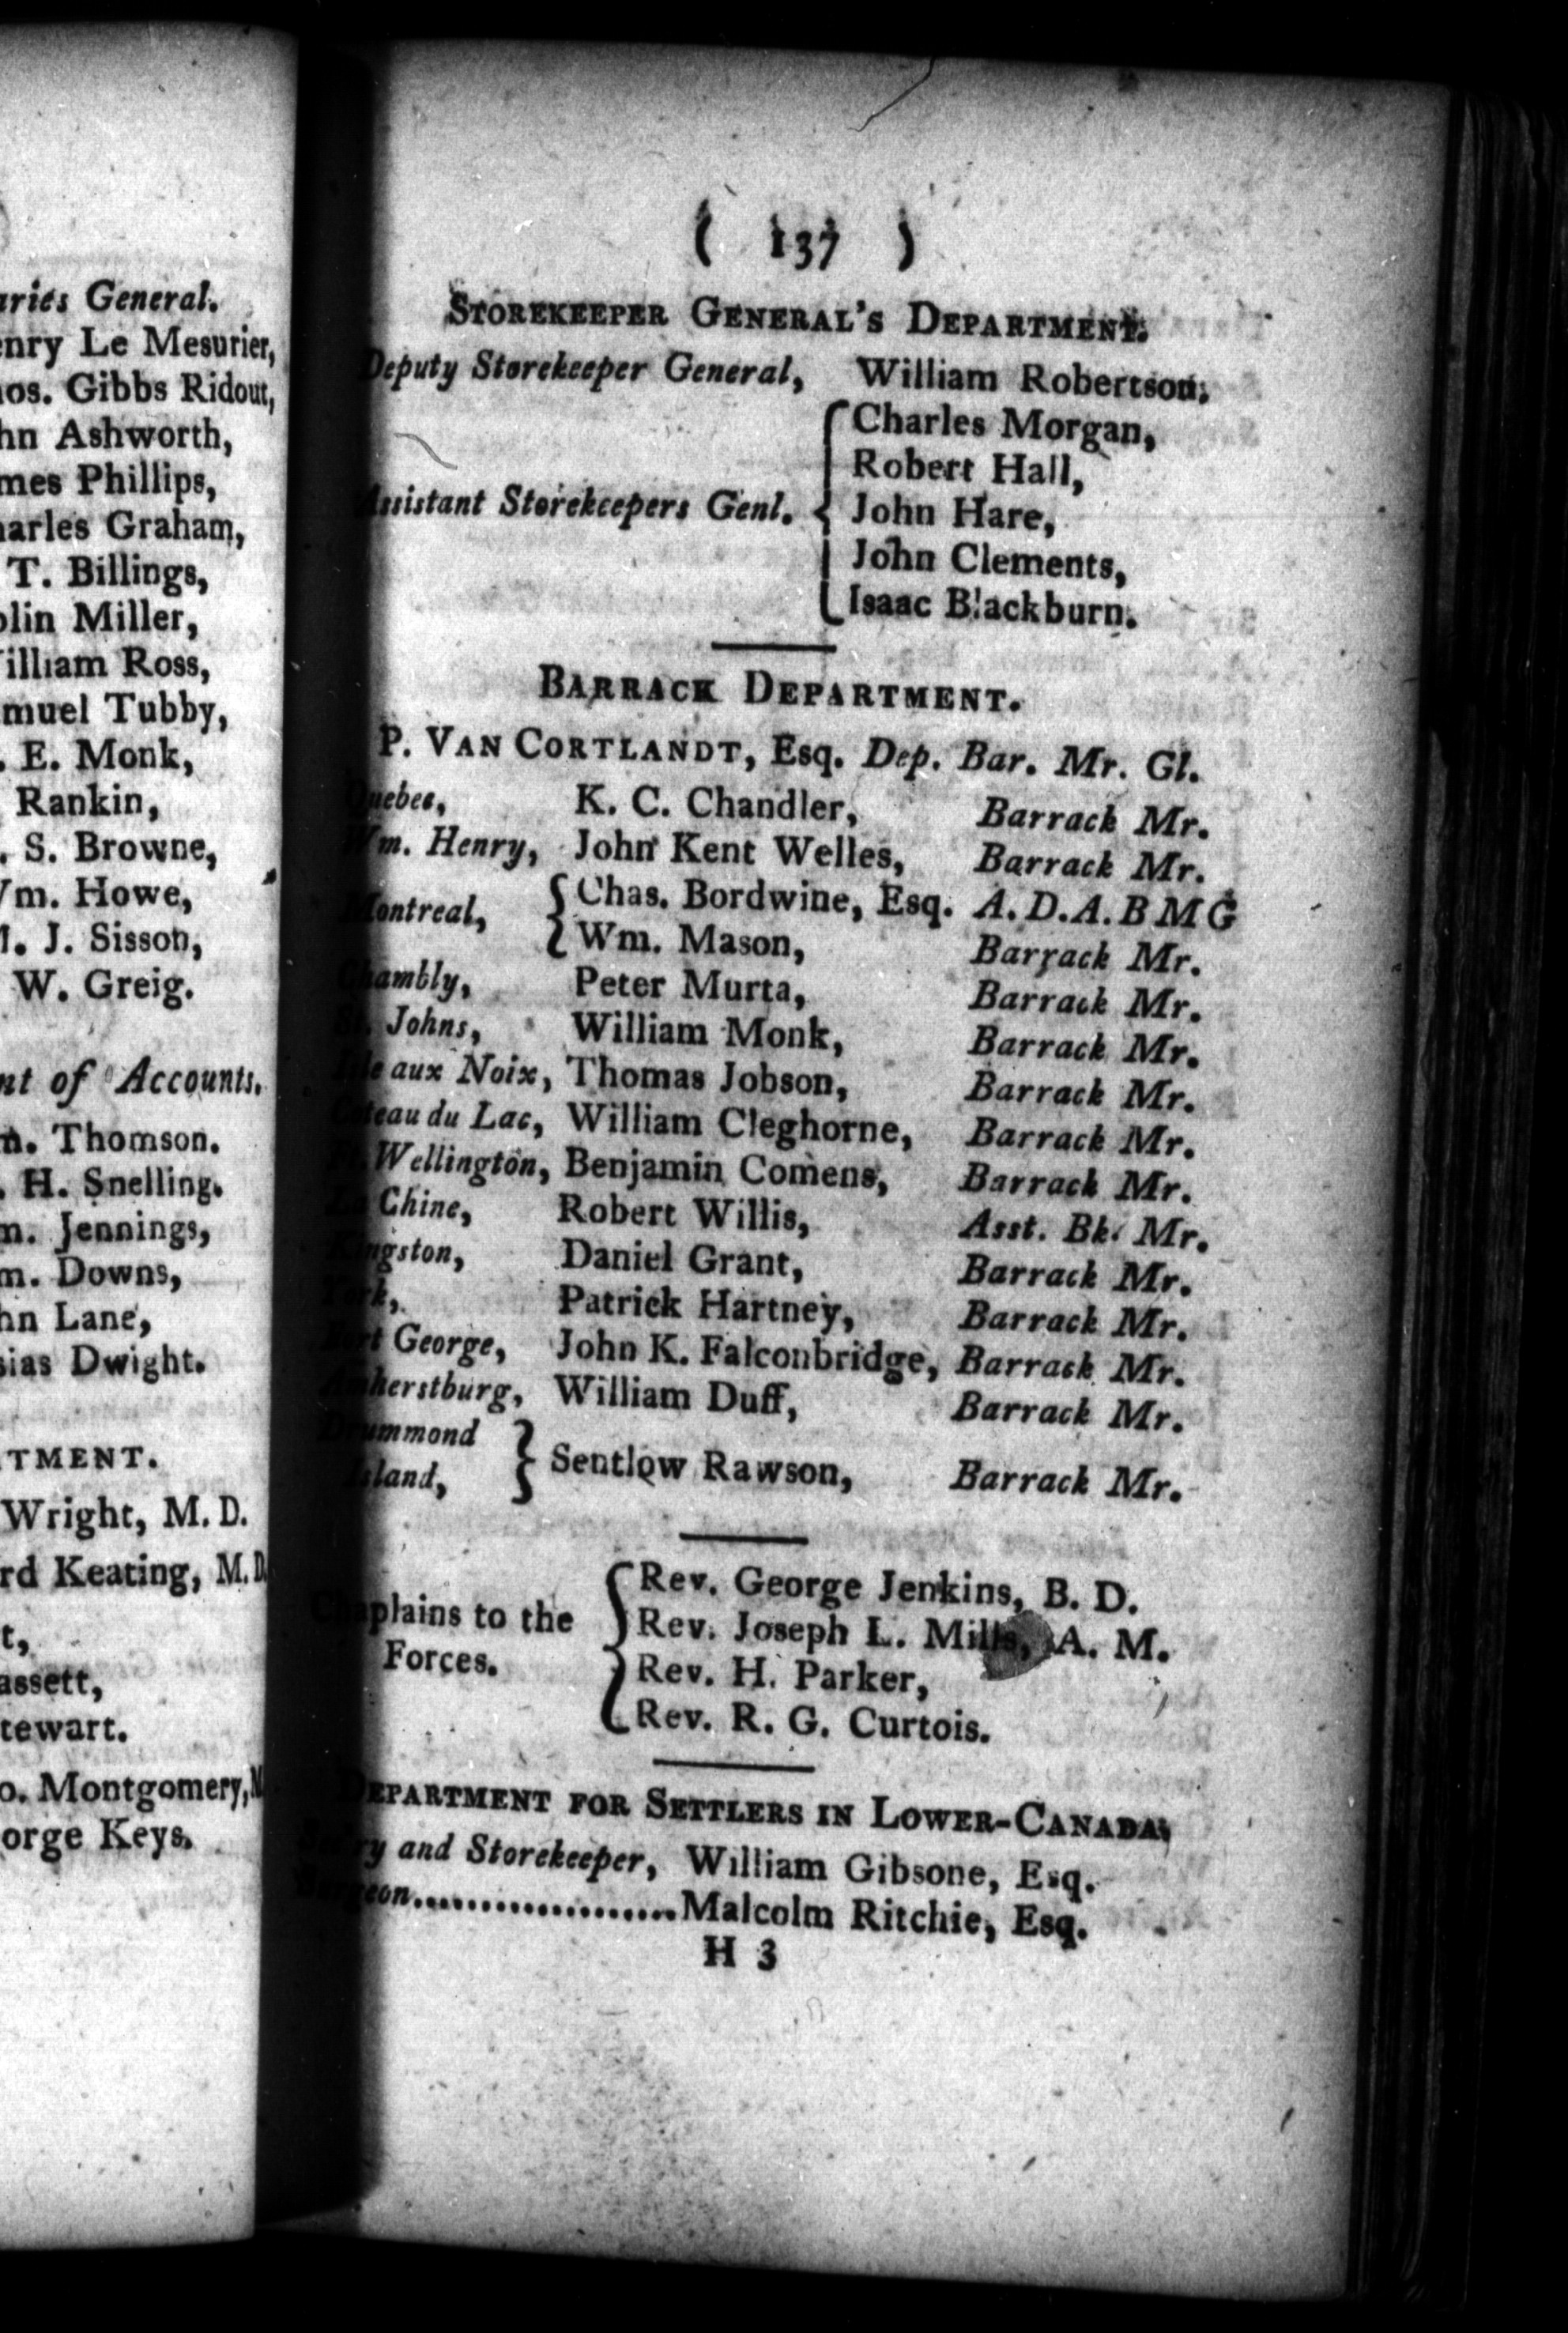 ries General.
nry Le Mesurier,
os. Gibbs Ridout,
hn Ashworth,
mes Phillips,
arles Graham,
T. Billings,
olin Miller,
illiam Ross,
muel Tubby,
. E. Monk,
Rankin,
. S. Browne,
m. Howe,
. J. Sisson,
W. Greig.
nt of Accounts.
m. Thomson.
. H. Snelling.
m. Jennings,
m. Downs,
hn Lane,
sias Dwight.
TMENT.
Wright, M. D.
rd Keating, M. D
t,
assett,
tewart.
o. Montgomery,
orge Keys.
( 137 )
STOREKEEPER GENERAL'S DEPARTMENT.
Deputy Storekeeper General, William Robertson,
Charles Morgan,
Robert Hall,
Assistant Storekeepers Genl. { John Hare,
John Clements,
Isaac Blackburn.
BARRACK DEPARTMENT.
P. VAN CORTLANDT, Esq. Dep. Bar. Mr. Gl.
Quebec, K. C. Chandler, Barrack Mr.
Wm. Henry, John Kent Welles, Barrack Mr.
Montreal, { Chas. Bordwine, Esq. A. D. A. B M G
Wm. Mason, Barrack Mr.
Chambly, Peter Murta, Barrack Mr.
St. Johns, William Monk, Barrack Mr.
Isle aux Noix, Thomas Jobson, Barrack Mr.
Coteau du Lac, William Cleghorne, Barrack Mr.
Ft. Wellington, Benjamin Comens, Barrack Mr.
La Chine, Robert Willis, Asst. Bk. Mr.
Kingston, Daniel Grant, Barrack Mr.
York, Patrick Hartney, Barrack Mr.
Fort George, John K. Falconbridge, Barrack Mr.
Amherstburg, William Duff, Barrack Mr.
Drummond
Island, } Sentlow Rawson, Barrack Mr.
Rev. George Jenkins, B. D.
Chaplains to the { Rev. Joseph L. Mills, A. M.
Forces. Rev. H. Parker,
Rev. R. G. Curtois.
DEPARTMENT FOR SETTLERS IN LOWER-CANADA,
ry and Storekeeper, William Gibsone, Esq.
Surgeon....................Malcolm Ritchie, Esq.
H 3